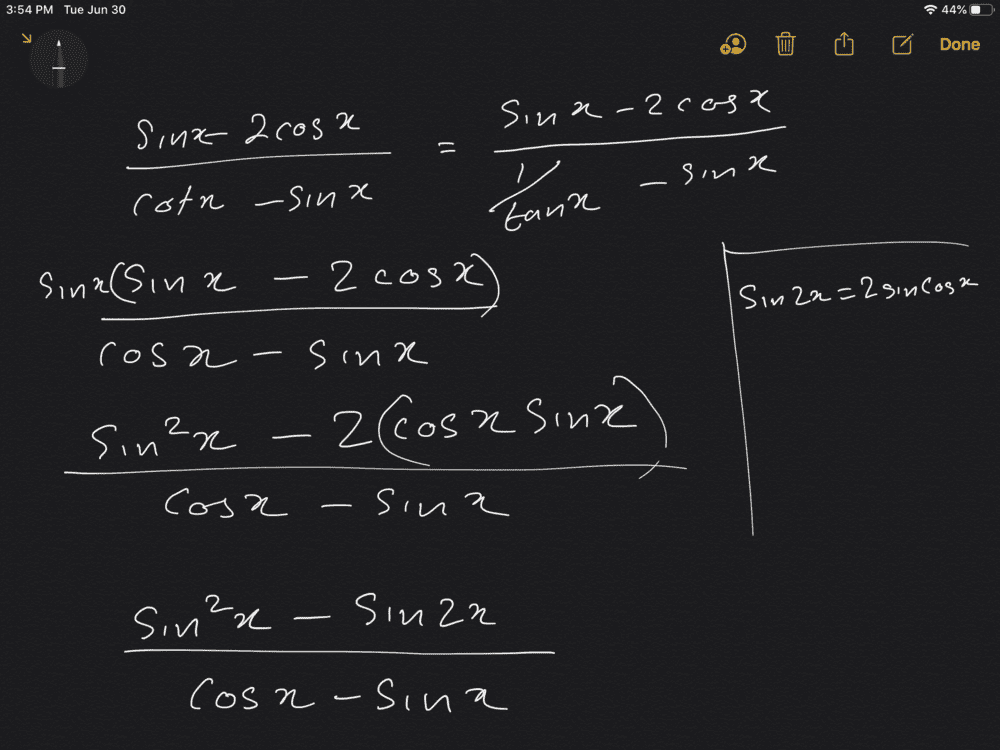 3:54 PM Tue Jun 30
44%
Done
sinx - 2cosx / cotx - sinx = sinx - 2cosx / 1/tanx - sinx
sinx(sinx - 2cosx) / cosx - sinx
sin2x = 2sincosx
sin²x - 2(cosx sinx) / cosx - sinx
sin²x - sin2x / cosx - sinx